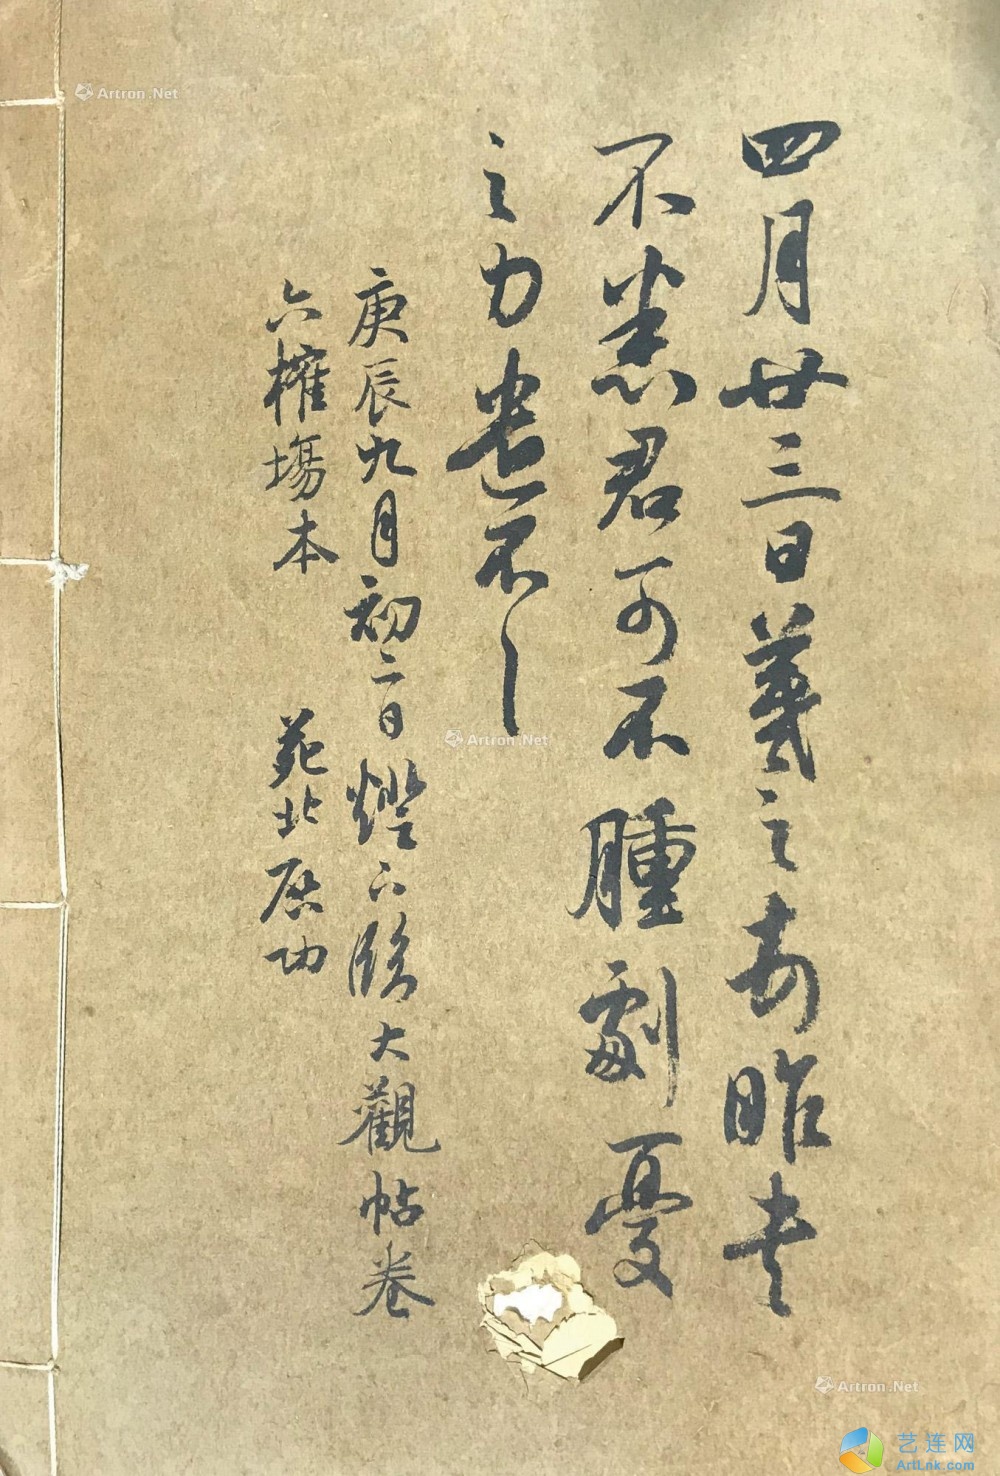 四月廿三日羲之頓首昨書
不悉君可不腫劇憂
之力遣不一一
庚辰九月初二日燈下臨大觀帖卷
六榷場本 苑北启功
Artron.Net
Artron.Net
Artron.Net
艺连网
ArtLnk.com